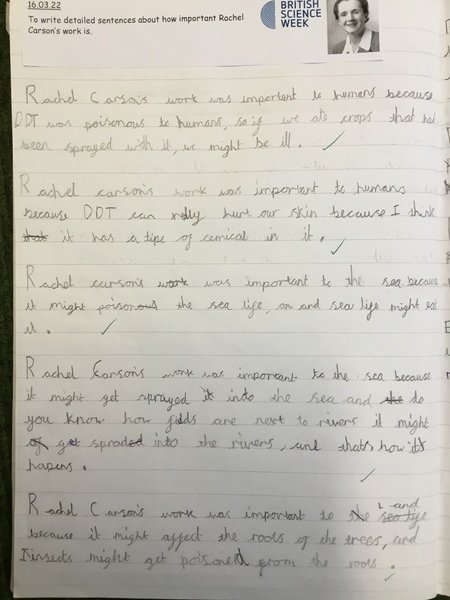 16.03.22
To write detailed sentences about how important Rachel
Carson's work is.
BRITISH
SCIENCE
WEEK
Rachel Carson's work was important to humans because
DDT was poisonous to humans, so if we ate crops that had
been sprayed with it, we might be ill.
Rachel carson's work was important to humans
because DDT can really hurt our skin because I think
that it has a tipe of cemical in it.
Rachel carson's work was important to the sea because
it might poisonous the sea life, on and sea life might eat
it.
Rachel Carson's work was important to the sea because
it might get sprayed it into the sea and the do
you know how feilds are next to rivers it might
get spraded into the rivers, and thats how it
hapens.
Rachel Carson's work was important to the land
because it might affect the roots of the trees, and
insects might get poisoned from the roots.